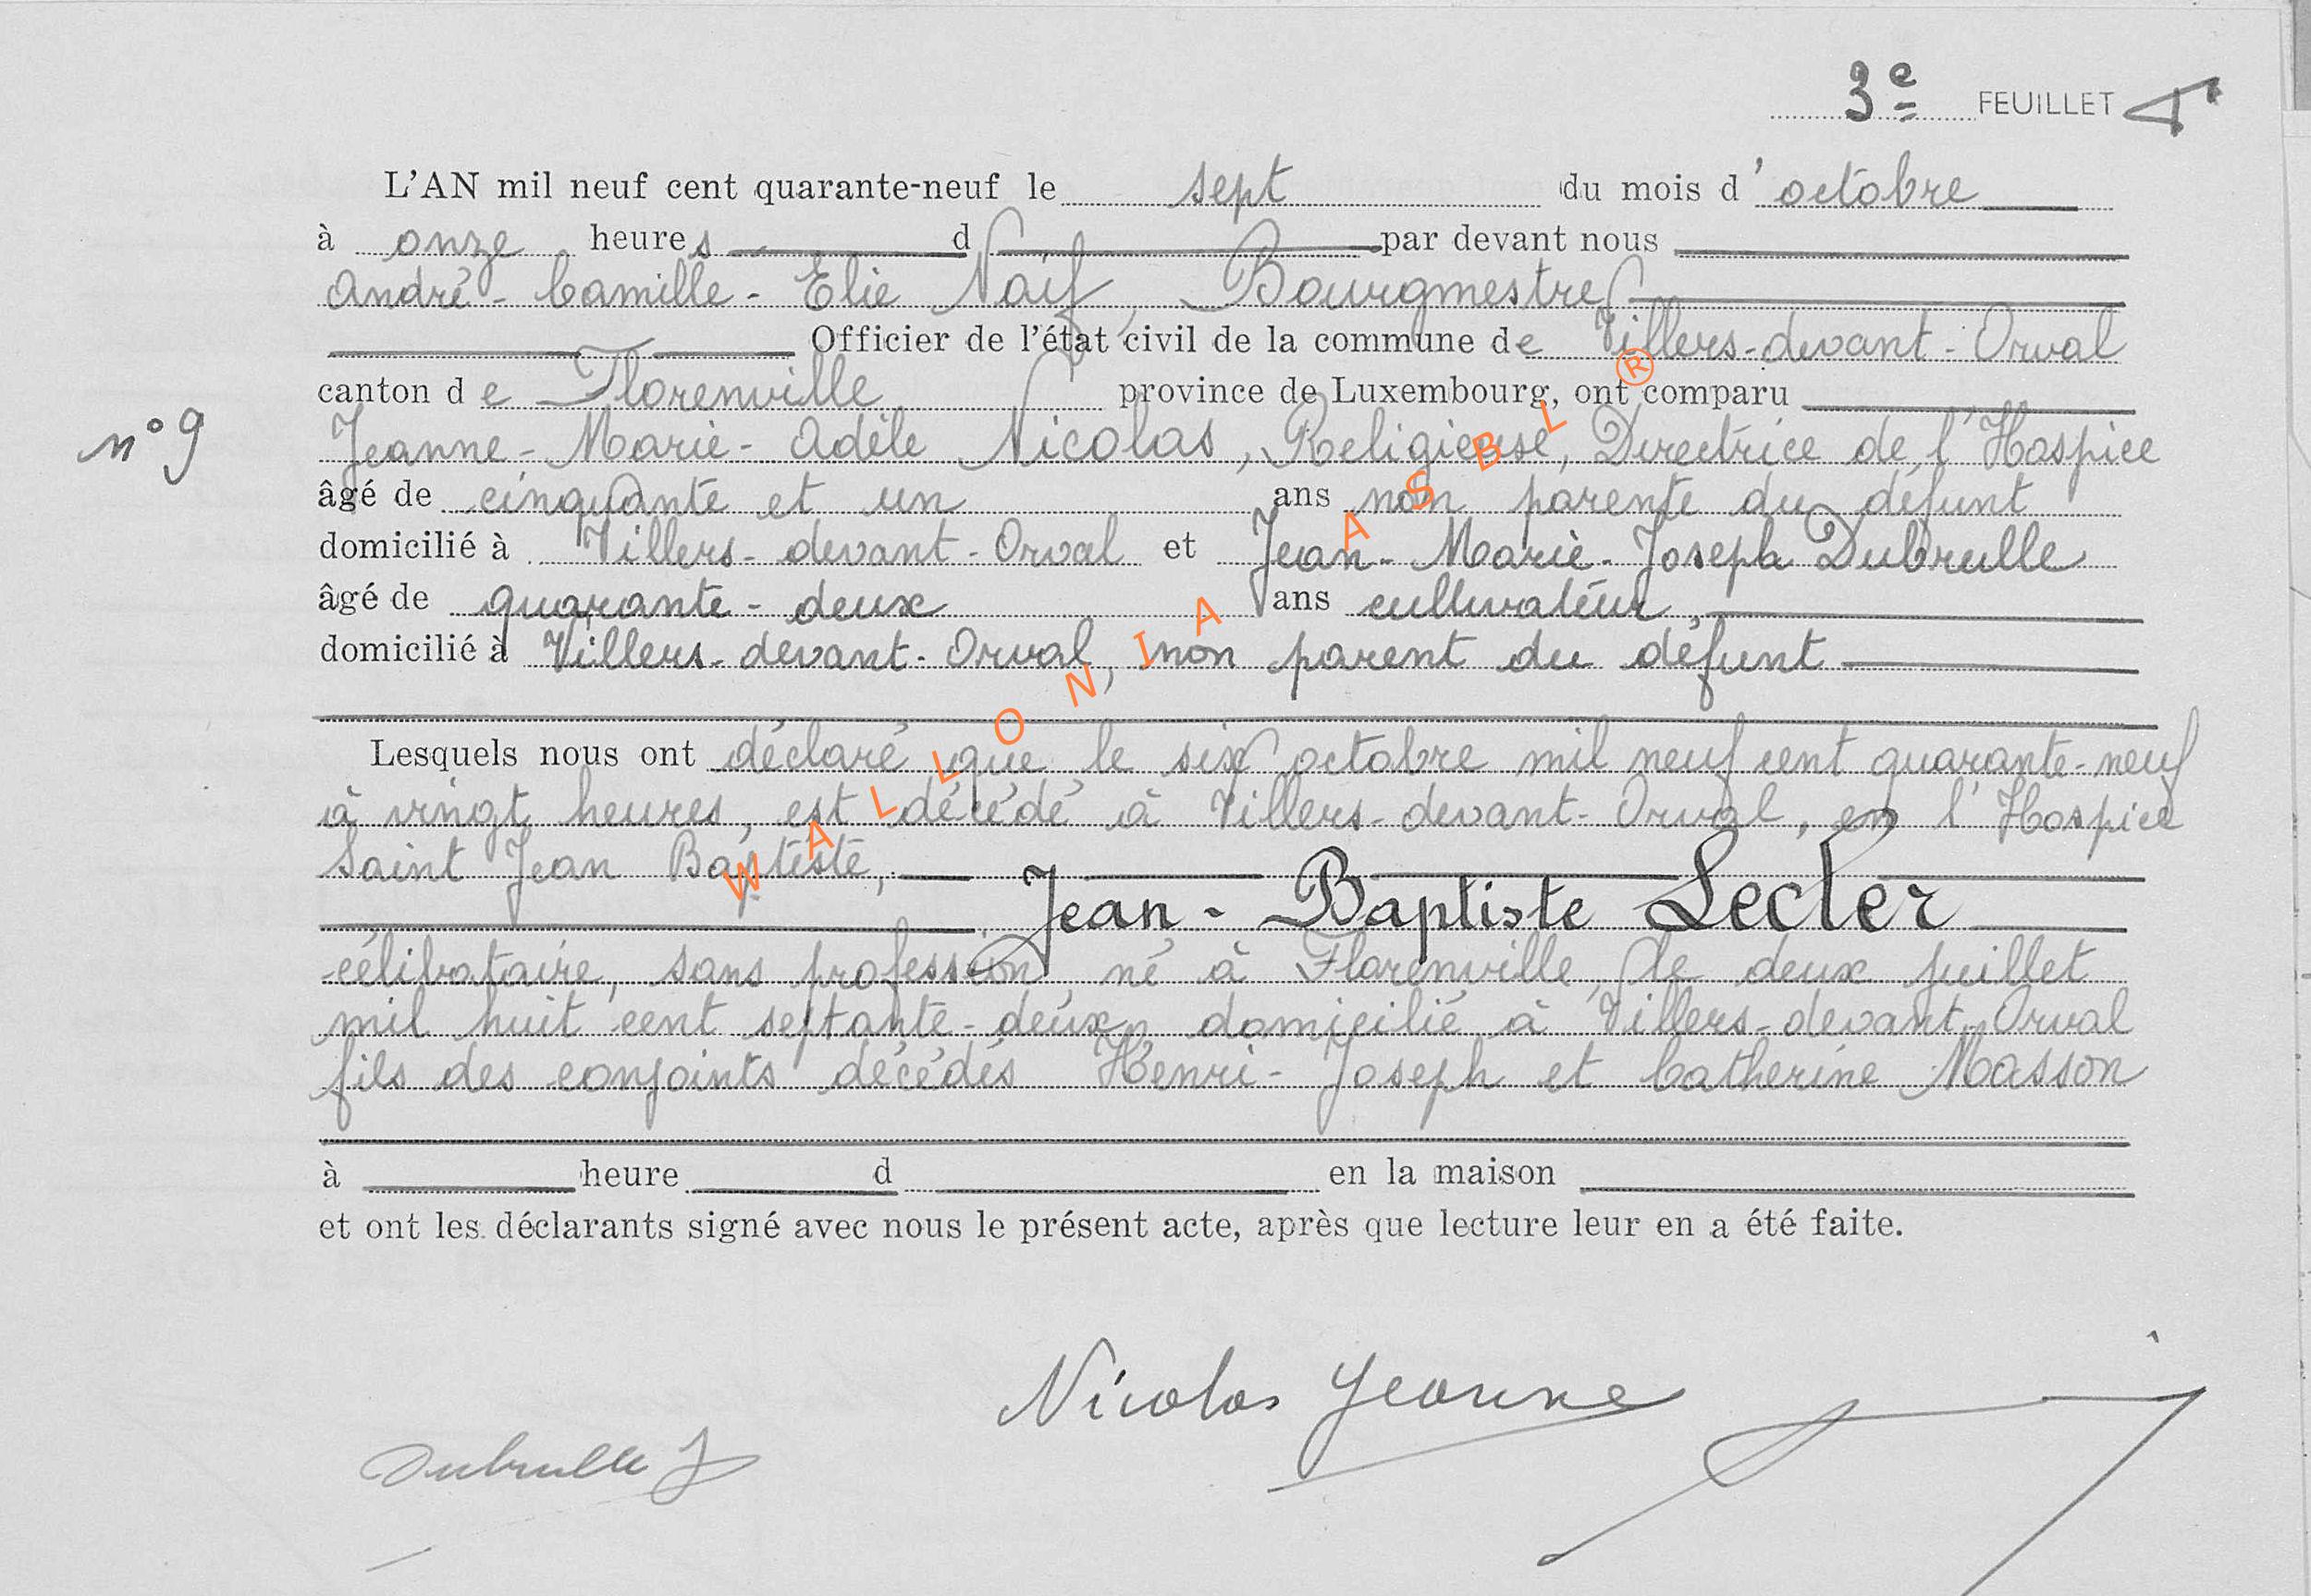 3e FEUILLET
L'AN mil neuf cent quarante-neuf le sept du mois d'octobre
à onze heures d par devant nous
André-Camille-Elie Naif, Bourgmestre
Officier de l'état civil de la commune de Villers-devant-Orval
canton de Florenville province de Luxembourg, ont comparu
n° 9
Jeanne-Marie-Adèle Nicolas, Religieuse, Directrice de l'Hospice
âgé de cinquante et un ans non parente du défunt
domicilié à Villers-devant-Orval et Jean-Marie-Joseph Dubrulle
âgé de quarante-deux ans cultivateur,
domicilié à Villers-devant-Orval, non parent du défunt
Lesquels nous ont déclaré que le six octobre mil neuf cent quarante-neuf
à vingt heures, est décédé à Villers-devant-Orval, en l'Hospice
Saint Jean Baptiste,
Jean-Baptiste Lecler
célibataire, sans profession, né à Florenville, le deux juillet
mil huit cent septante-deux, domicilié à Villers-devant-Orval
fils des conjoints décédés Henri-Joseph et Catherine Masson
à heure d en la maison
et ont les déclarants signé avec nous le présent acte, après que lecture leur en a été faite.
Nicolas Jeanne
Dubrulle J
WALLONIA ASBL ®